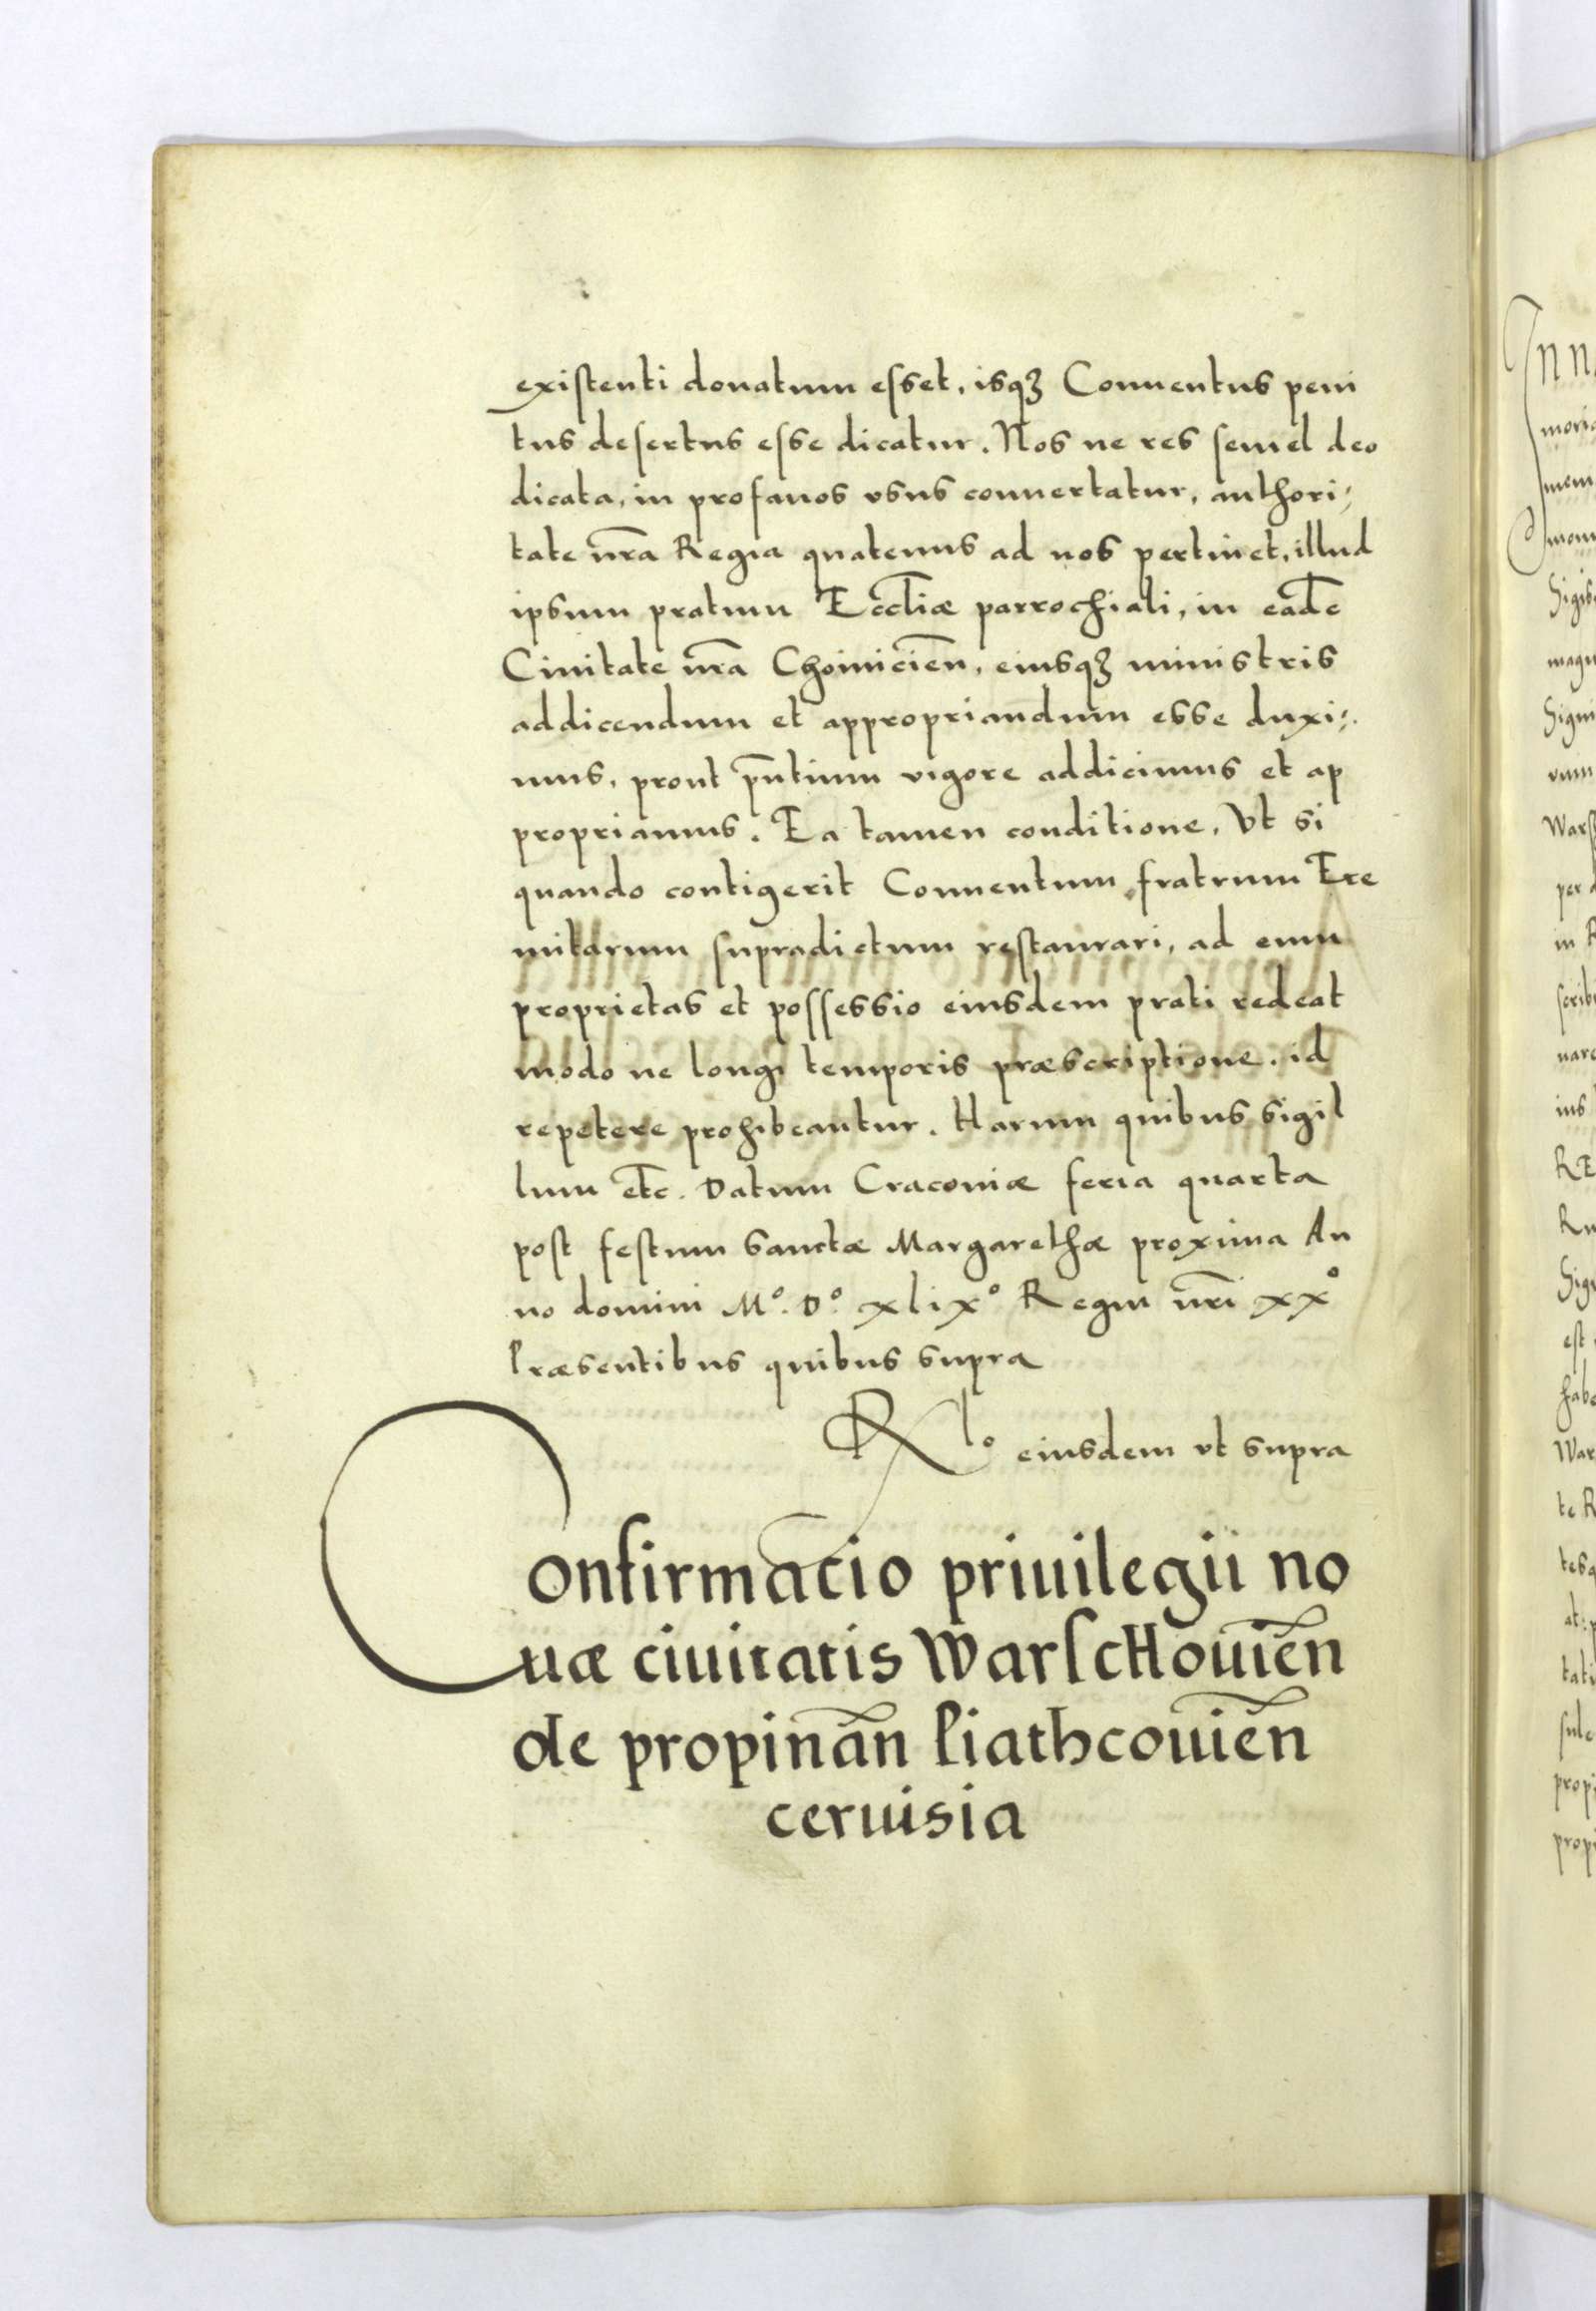 existenti donatum esset, isqꝫ Conuentus peni
tus desertus esse dicatur. Nos ne res semel deo
dicata, in profanos vsus conuertatur, authori⸗
tate nr̃a Regia quatenus ad nos pertinet, illud
ipsum pratum Eccl̃iæ parrochiali, in eadẽ
Ciuitate nr̃a Choinicieñ, eiusqꝫ ministris
addicendum et appropriandum esse duxi⸗
mus, prout pñtium vigore addicimus et ap
propriamus. Ea tamen conditione, Vt si
quando contigerit Conuentum fratrum Ere
mitarum supradictum restaurari, ad eum
proprietas et possessio eiusdem prati redeat
modo ne longi temporis præscriptione, id
repetere prohibeantur. Harum quibus sigil
lum etc̃. Datum Cracouiæ feria quarta
post festum Sanctæ Margarethæ proxima An
no domini Mº. Dº. xlixº Regni nr̃i xxº
Præsentibus quibus supra
Rlº eiusdem vt supra
Confirmacio priuilegii no
uæ ciuitatis Warschouień
de propinañ Piathcouieñ
ceruisia